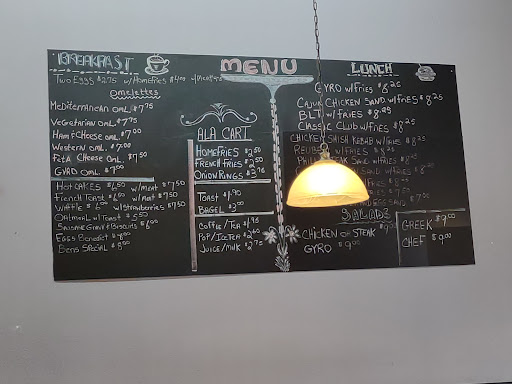 MENU
BREAKFAST
TWO EGGS $2.75 w/HOMEFRIES $4.00
Omelettes
MEDITERRANEAN OML. $7.75
VEGETARIAN OML. $7.75
HAM & CHEESE OML. $7.00
WESTERN OML. $7.00
FETA CHEESE OML. $7.50
GYRO OML. $7.00
HOTCAKES $6.50 w/MEAT $7.50
FRENCH TOAST $6 w/MEAT $7.50
WAFFLE $6.00 w/STRAWBERRIES $7.50
OATMEAL w/TOAST $5.50
SAUSAGE GRAVY & BISCUITS $6.00
EGGS BENEDICT $8.00
BENS SPECIAL $9.00
ALA CART
HOMEFRIES $2.50
FRENCH FRIES $2.50
ONION RINGS $2.75
TOAST $1.90
BAGEL $3.00
COFFEE/TEA $1.95
POP/ICE TEA $2.60
JUICE/MILK $2.75
LUNCH
GYRO w/FRIES $8.25
CAJUN CHICKEN SAND w/FRIES $8.25
BLT w/FRIES $8.99
CLASSIC CLUB w/FRIES $8.25
CHICKEN SHISH KEBAB w/FRIES $8.25
REUBEN w/FRIES $8.25
PHILLY STEAK SAND w/FRIES $8.25
SALADS
CHICKEN OR STEAK $9.00
GYRO $9.00
GREEK $9.00
CHEF $9.00